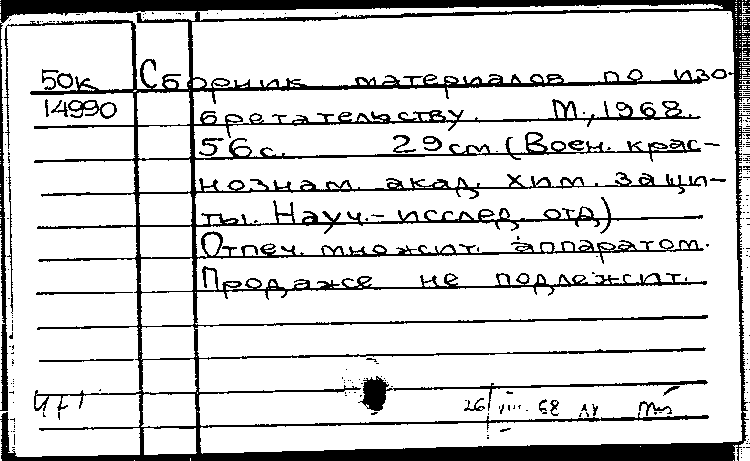 50к Сборник материалов по изо-
14990 бретательству. М., 1968.
56с. 29см. (Воен. крас-
нознам. акад. хим. защи-
ты. Науч.-исслед. отд.)
Отпеч. множит. аппаратом.
Продаже не подлежит.
26/VIII. 68